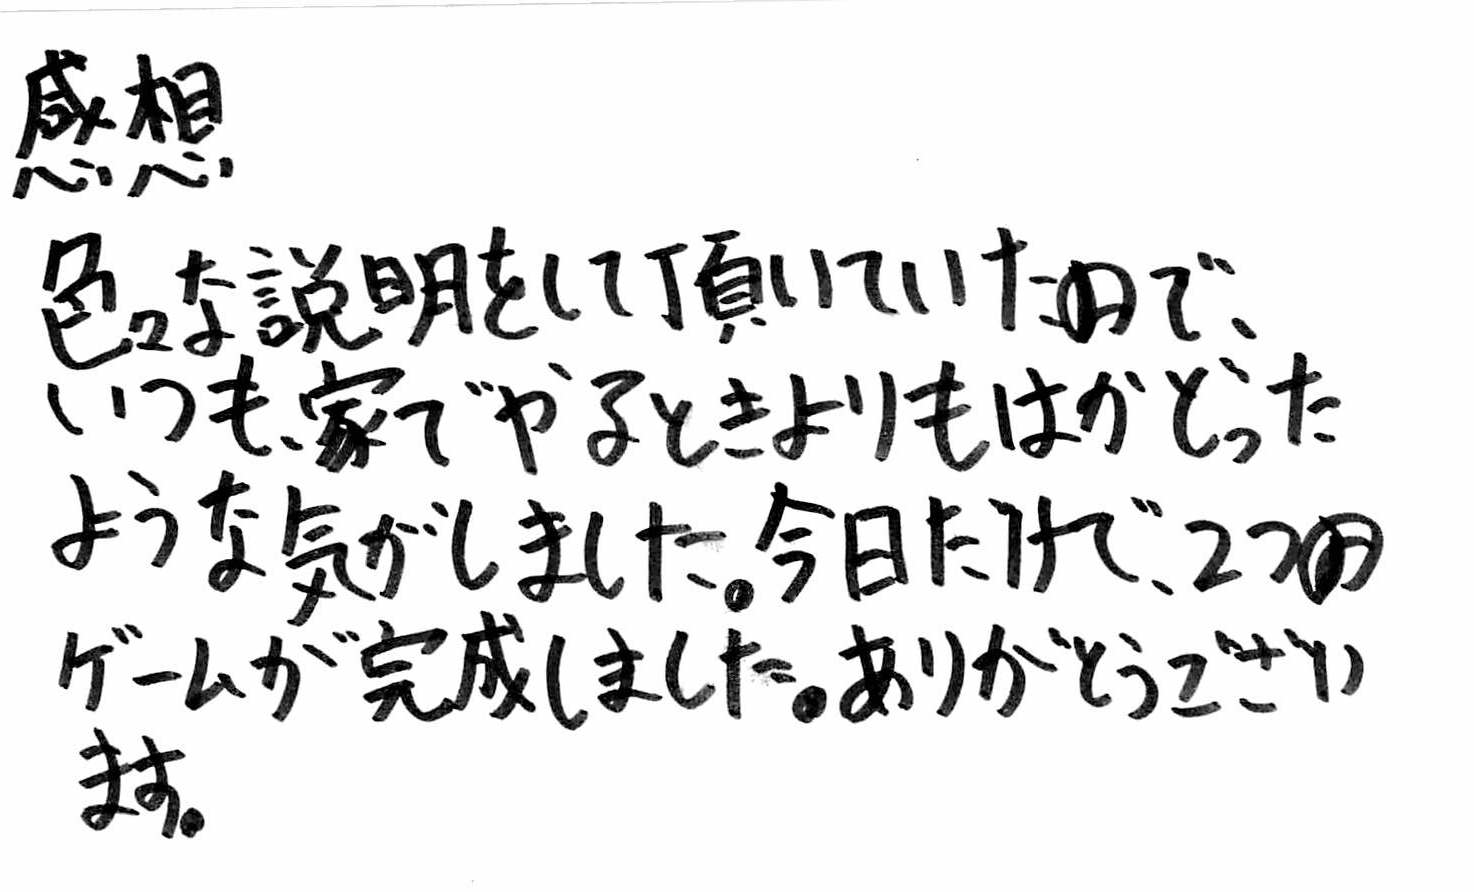 感想
色々な説明をして頂いていたので、
いつも、家でやるときよりもはかどった
ような気がしました。今日だけで、2つの
ゲームが完成しました。ありがとうござい
ます。